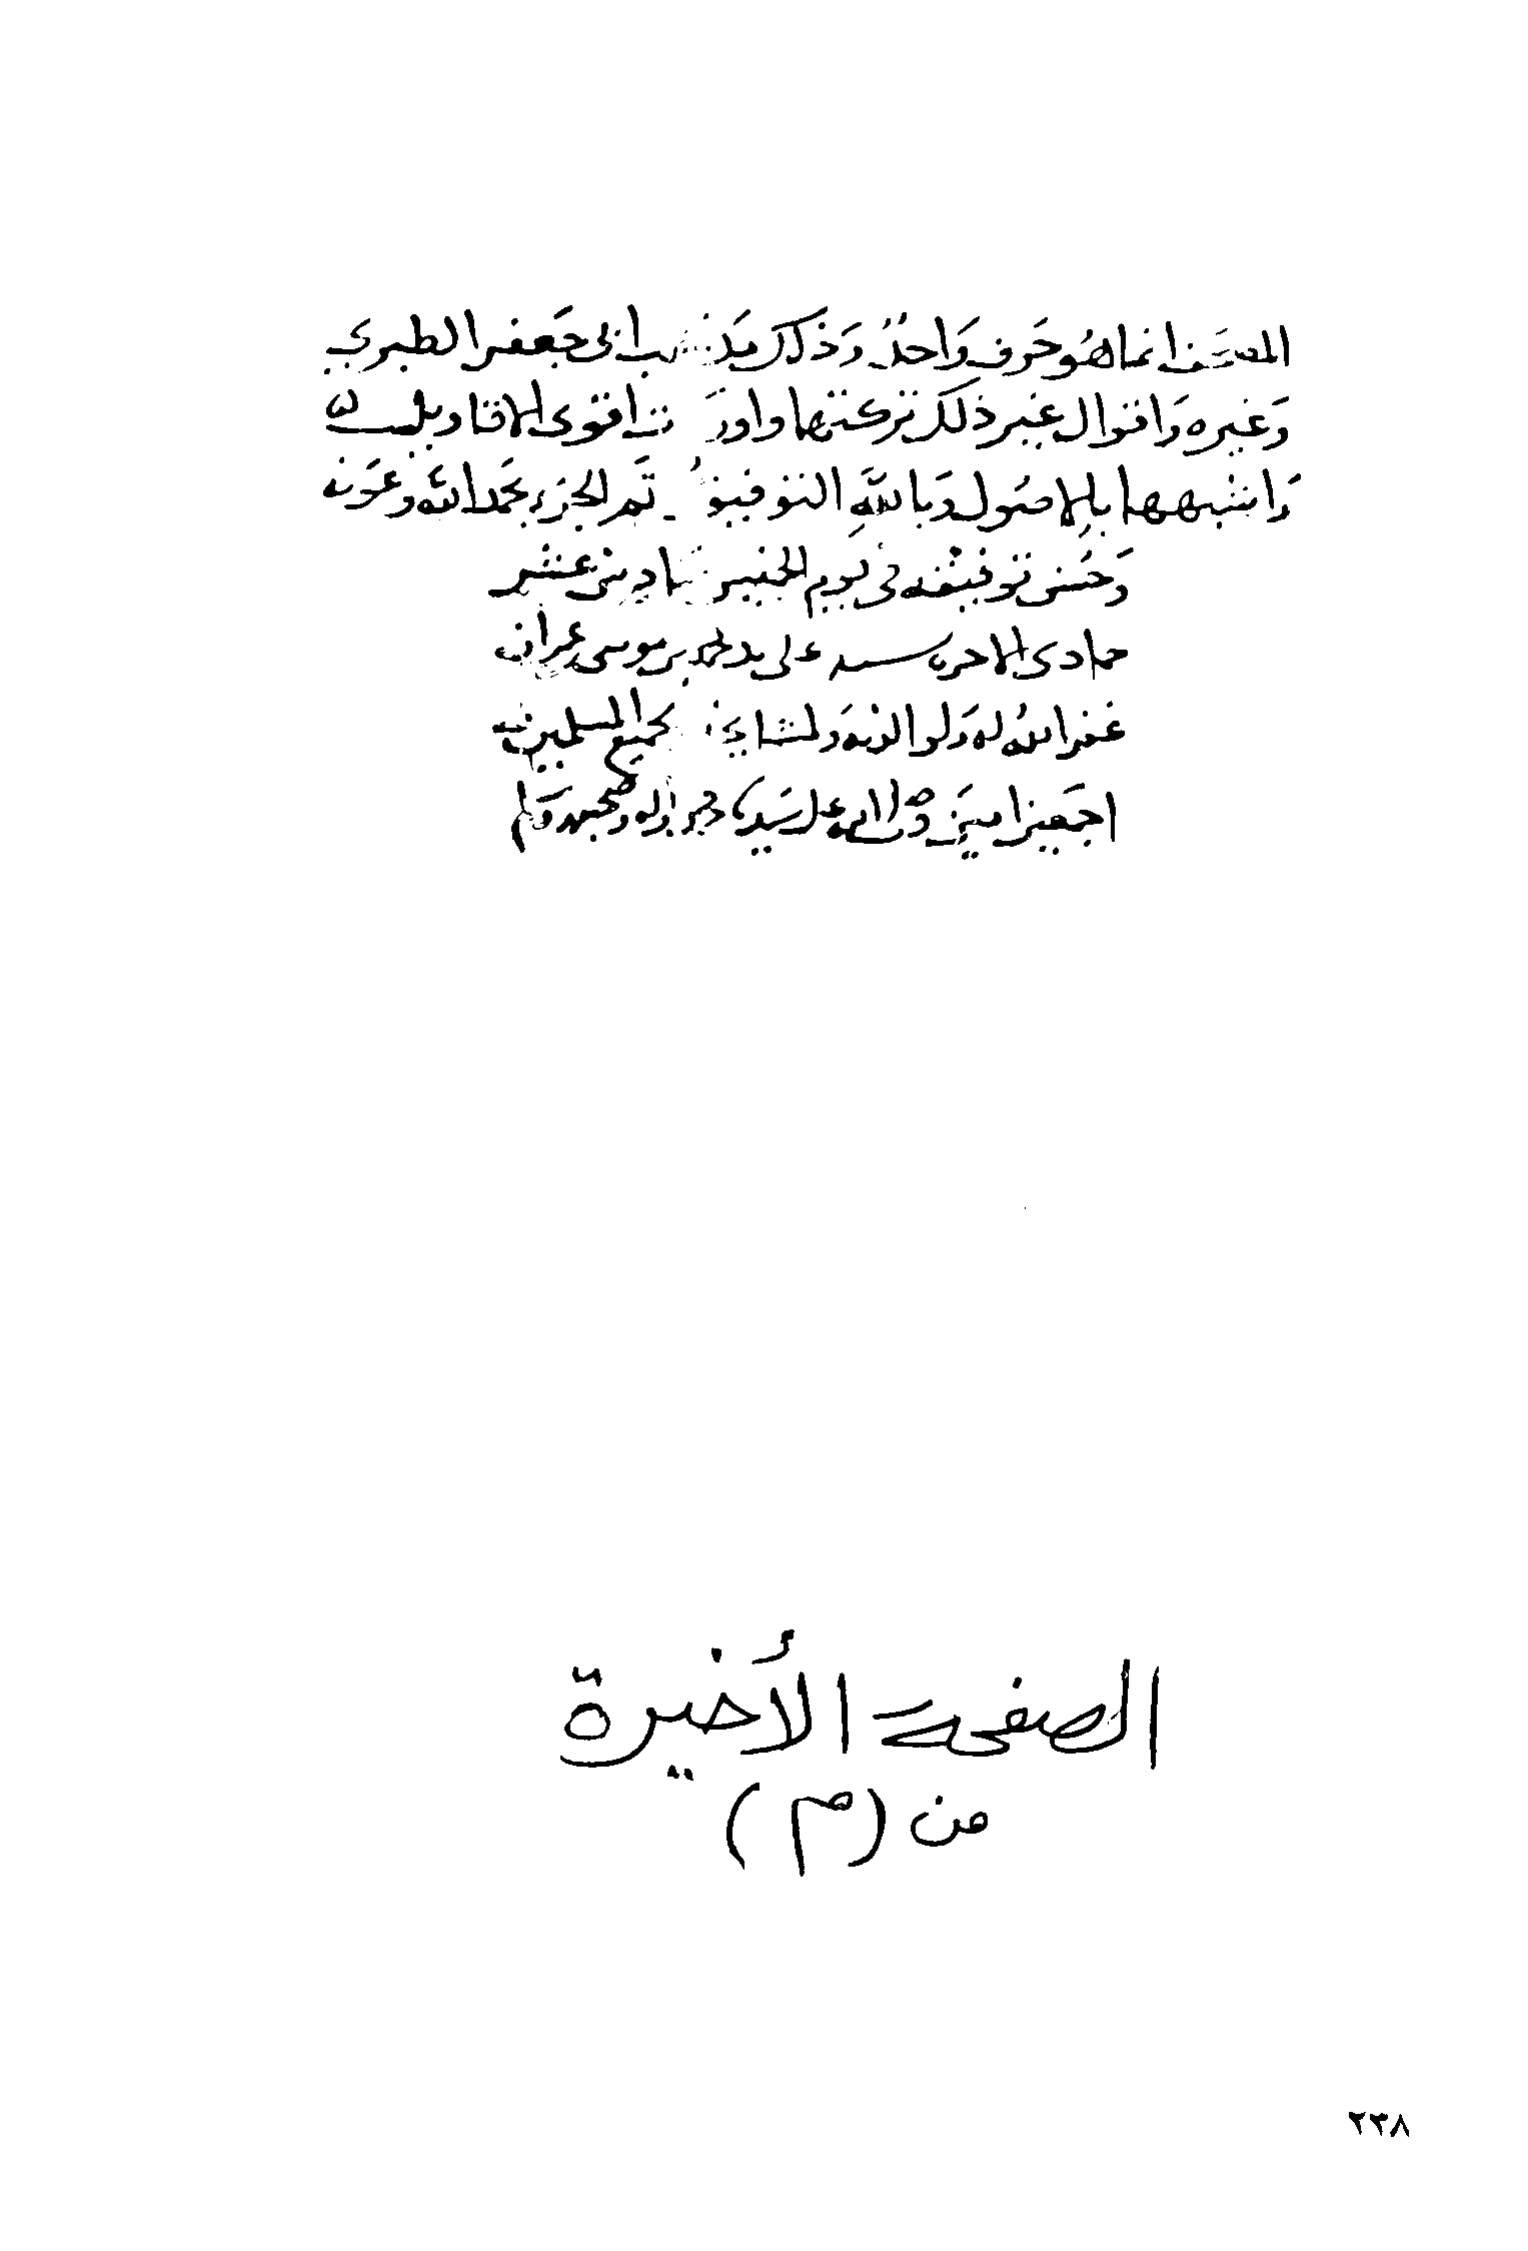 المصحف انما هو حَرف وَاحدٌ وَذلك مذهب ابى جَعفر الطبري
وَغيره وَاقوال غير ذلك تركتها واوردت اقوى الاقاويل
وَاشبهها بالاصول وَباللهِ التوفيق تَم الجزء بحَمد الله وعَونه
وَحُسن توفيقه فى يوم الخميس سادس عشر
جمادى الاخر سنه على يد محمد بن موسى عمران
غفر اللهُ له وَلوالديه وَلمشايخه لجميع المسلمين
اجمَعين امين وصَلى الله على سَيدنا محمد واله وصحبه وَسلم
الصفحة الأخيرة
من (م)
٢٣٨